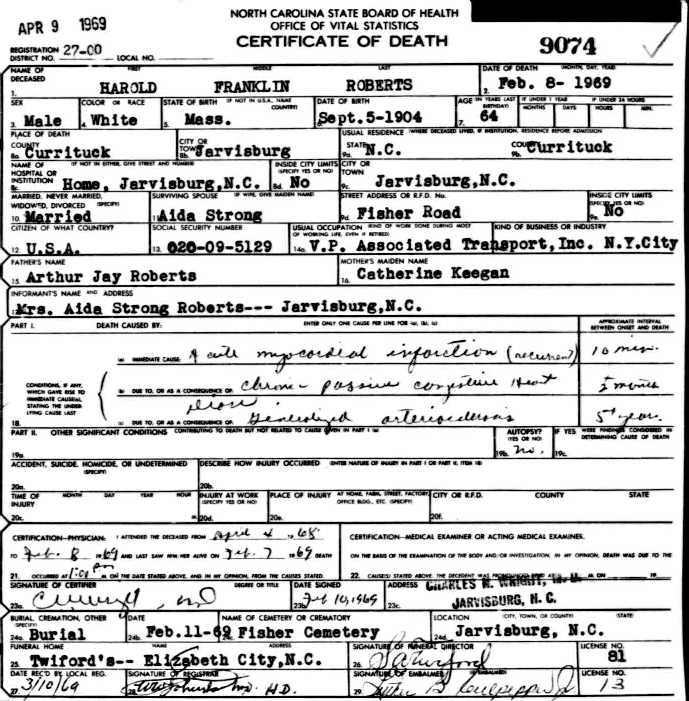 APR 9 1969
NORTH CAROLINA STATE BOARD OF HEALTH
OFFICE OF VITAL STATISTICS
CERTIFICATE OF DEATH
9074
REGISTRATION DISTRICT NO. 27-00 LOCAL NO.
NAME OF DECEASED FIRST MIDDLE LAST DATE OF DEATH (MONTH, DAY, YEAR)
1. HAROLD FRANKLIN ROBERTS 2. Feb. 8- 1969
SEX COLOR OR RACE STATE OF BIRTH (IF NOT IN U.S.A., NAME COUNTRY) DATE OF BIRTH AGE (IN YEARS LAST BIRTHDAY) IF UNDER 1 YEAR IF UNDER 24 HOURS
MONTHS DAYS HOURS MIN.
3. Male 4. White 5. Mass. 6. Sept.5-1904 7. 64
PLACE OF DEATH USUAL RESIDENCE (WHERE DECEASED LIVED, IF INSTITUTION, RESIDENCE BEFORE ADMISSION
COUNTY CITY OR TOWN STATE COUNTY
8a. Currituck 8b. Jarvisburg 9a. N.C. 9b. Currituck
NAME OF HOSPITAL OR INSTITUTION (IF NOT IN EITHER, GIVE STREET AND NUMBER) INSIDE CITY LIMITS (SPECIFY YES OR NO) CITY OR TOWN
8c. Home, Jarvisburg,N.C. 8d. No 9c. Jarvisburg,N.C.
MARRIED, NEVER MARRIED, WIDOWED, DIVORCED (SPECIFY) SURVIVING SPOUSE (IF WIFE, GIVE MAIDEN NAME) STREET ADDRESS OR R.F.D. No. INSIDE CITY LIMITS (SPECIFY YES OR NO)
10. Married 11. Aida Strong 9d. Fisher Road 9e. No
CITIZEN OF WHAT COUNTRY? SOCIAL SECURITY NUMBER USUAL OCCUPATION (KIND OF WORK DONE DURING MOST OF WORKING LIFE, EVEN IF RETIRED) KIND OF BUSINESS OR INDUSTRY
12. U.S.A. 13. 020-09-5129 14a. V.P. Associated Transport,Inc. N.Y.City
FATHER'S NAME MOTHER'S MAIDEN NAME
15. Arthur Jay Roberts 16. Catherine Keegan
INFORMANT'S NAME AND ADDRESS
Mrs. Aida Strong Roberts--- Jarvisburg,N.C.
PART I. DEATH CAUSED BY: ENTER ONLY ONE CAUSE PER LINE FOR (a), (b), (c) APPROXIMATE INTERVAL BETWEEN ONSET AND DEATH
(a) IMMEDIATE CAUSE: Acute myocardial infarction (recurrent) 10 min.
CONDITIONS, IF ANY, WHICH GAVE RISE TO IMMEDIATE CAUSE(a) STATING THE UNDERLYING CAUSE LAST
(b) DUE TO, OR AS A CONSEQUENCE OF: chronic passive congestive Heart
18. (c) DUE TO, OR AS A CONSEQUENCE OF: Generalized arteriosclerosis 5+ years
PART II. OTHER SIGNIFICANT CONDITIONS CONTRIBUTING TO DEATH BUT NOT RELATED TO CAUSE GIVEN IN PART I (a) AUTOPSY? (YES OR NO) IF YES WERE FINDINGS CONSIDERED IN DETERMINING CAUSE OF DEATH
19a. 19b. No. 19c.
ACCIDENT, SUICIDE, HOMICIDE, OR UNDETERMINED (SPECIFY) DESCRIBE HOW INJURY OCCURRED (ENTER NATURE OF INJURY IN PART I OR PART II, ITEM 18)
20a. 20b.
TIME OF INJURY MONTH DAY YEAR HOUR INJURY AT WORK (SPECIFY YES OR NO) PLACE OF INJURY AT HOME, FARM, STREET, FACTORY, OFFICE BLDG., ETC. (SPECIFY) CITY OR R.F.D. COUNTY STATE
20c. 20d. 20e. 20f.
CERTIFICATION-PHYSICIAN: I ATTENDED THE DECEASED FROM April 4 1968 CERTIFICATION-MEDICAL EXAMINER OR ACTING MEDICAL EXAMINER.
TO Feb. 8 1969 AND LAST SAW HIM/HER ALIVE ON Feb. 7 1969 DEATH ON THE BASIS OF THE EXAMINATION OF THE BODY AND/OR INVESTIGATION, IN MY OPINION, DEATH WAS DUE TO THE
21. OCCURRED AT 1:00 PM ON THE DATE STATED ABOVE, AND IN MY OPINION, FROM THE CAUSES STATED. 22. CAUSE(S) STATED ABOVE. THE DECEDENT WAS PRONOUNCED M. ON 19
SIGNATURE OF CERTIFIER DEGREE OR TITLE DATE SIGNED ADDRESS CHARLES N. WRIGHT, M. D.
23a. 23b. Feb 10, 1969 23c. JARVISBURG, N. C.
BURIAL, CREMATION, OTHER (SPECIFY) DATE NAME OF CEMETERY OR CREMATORY LOCATION (CITY, TOWN, OR COUNTY) (STATE)
24a. Burial 24b. Feb.11-69 Fisher Cemetery 24d. Jarvisburg, N.C.
FUNERAL HOME NAME ADDRESS SIGNATURE OF FUNERAL DIRECTOR LICENSE NO.
25. Twiford's-- Elizabeth City,N.C. 26. 81
DATE REC'D BY LOCAL REG. SIGNATURE OF REGISTRAR SIGNATURE OF EMBALMER LICENSE NO.
27. 3/10/69 28. H.D. 29. 13